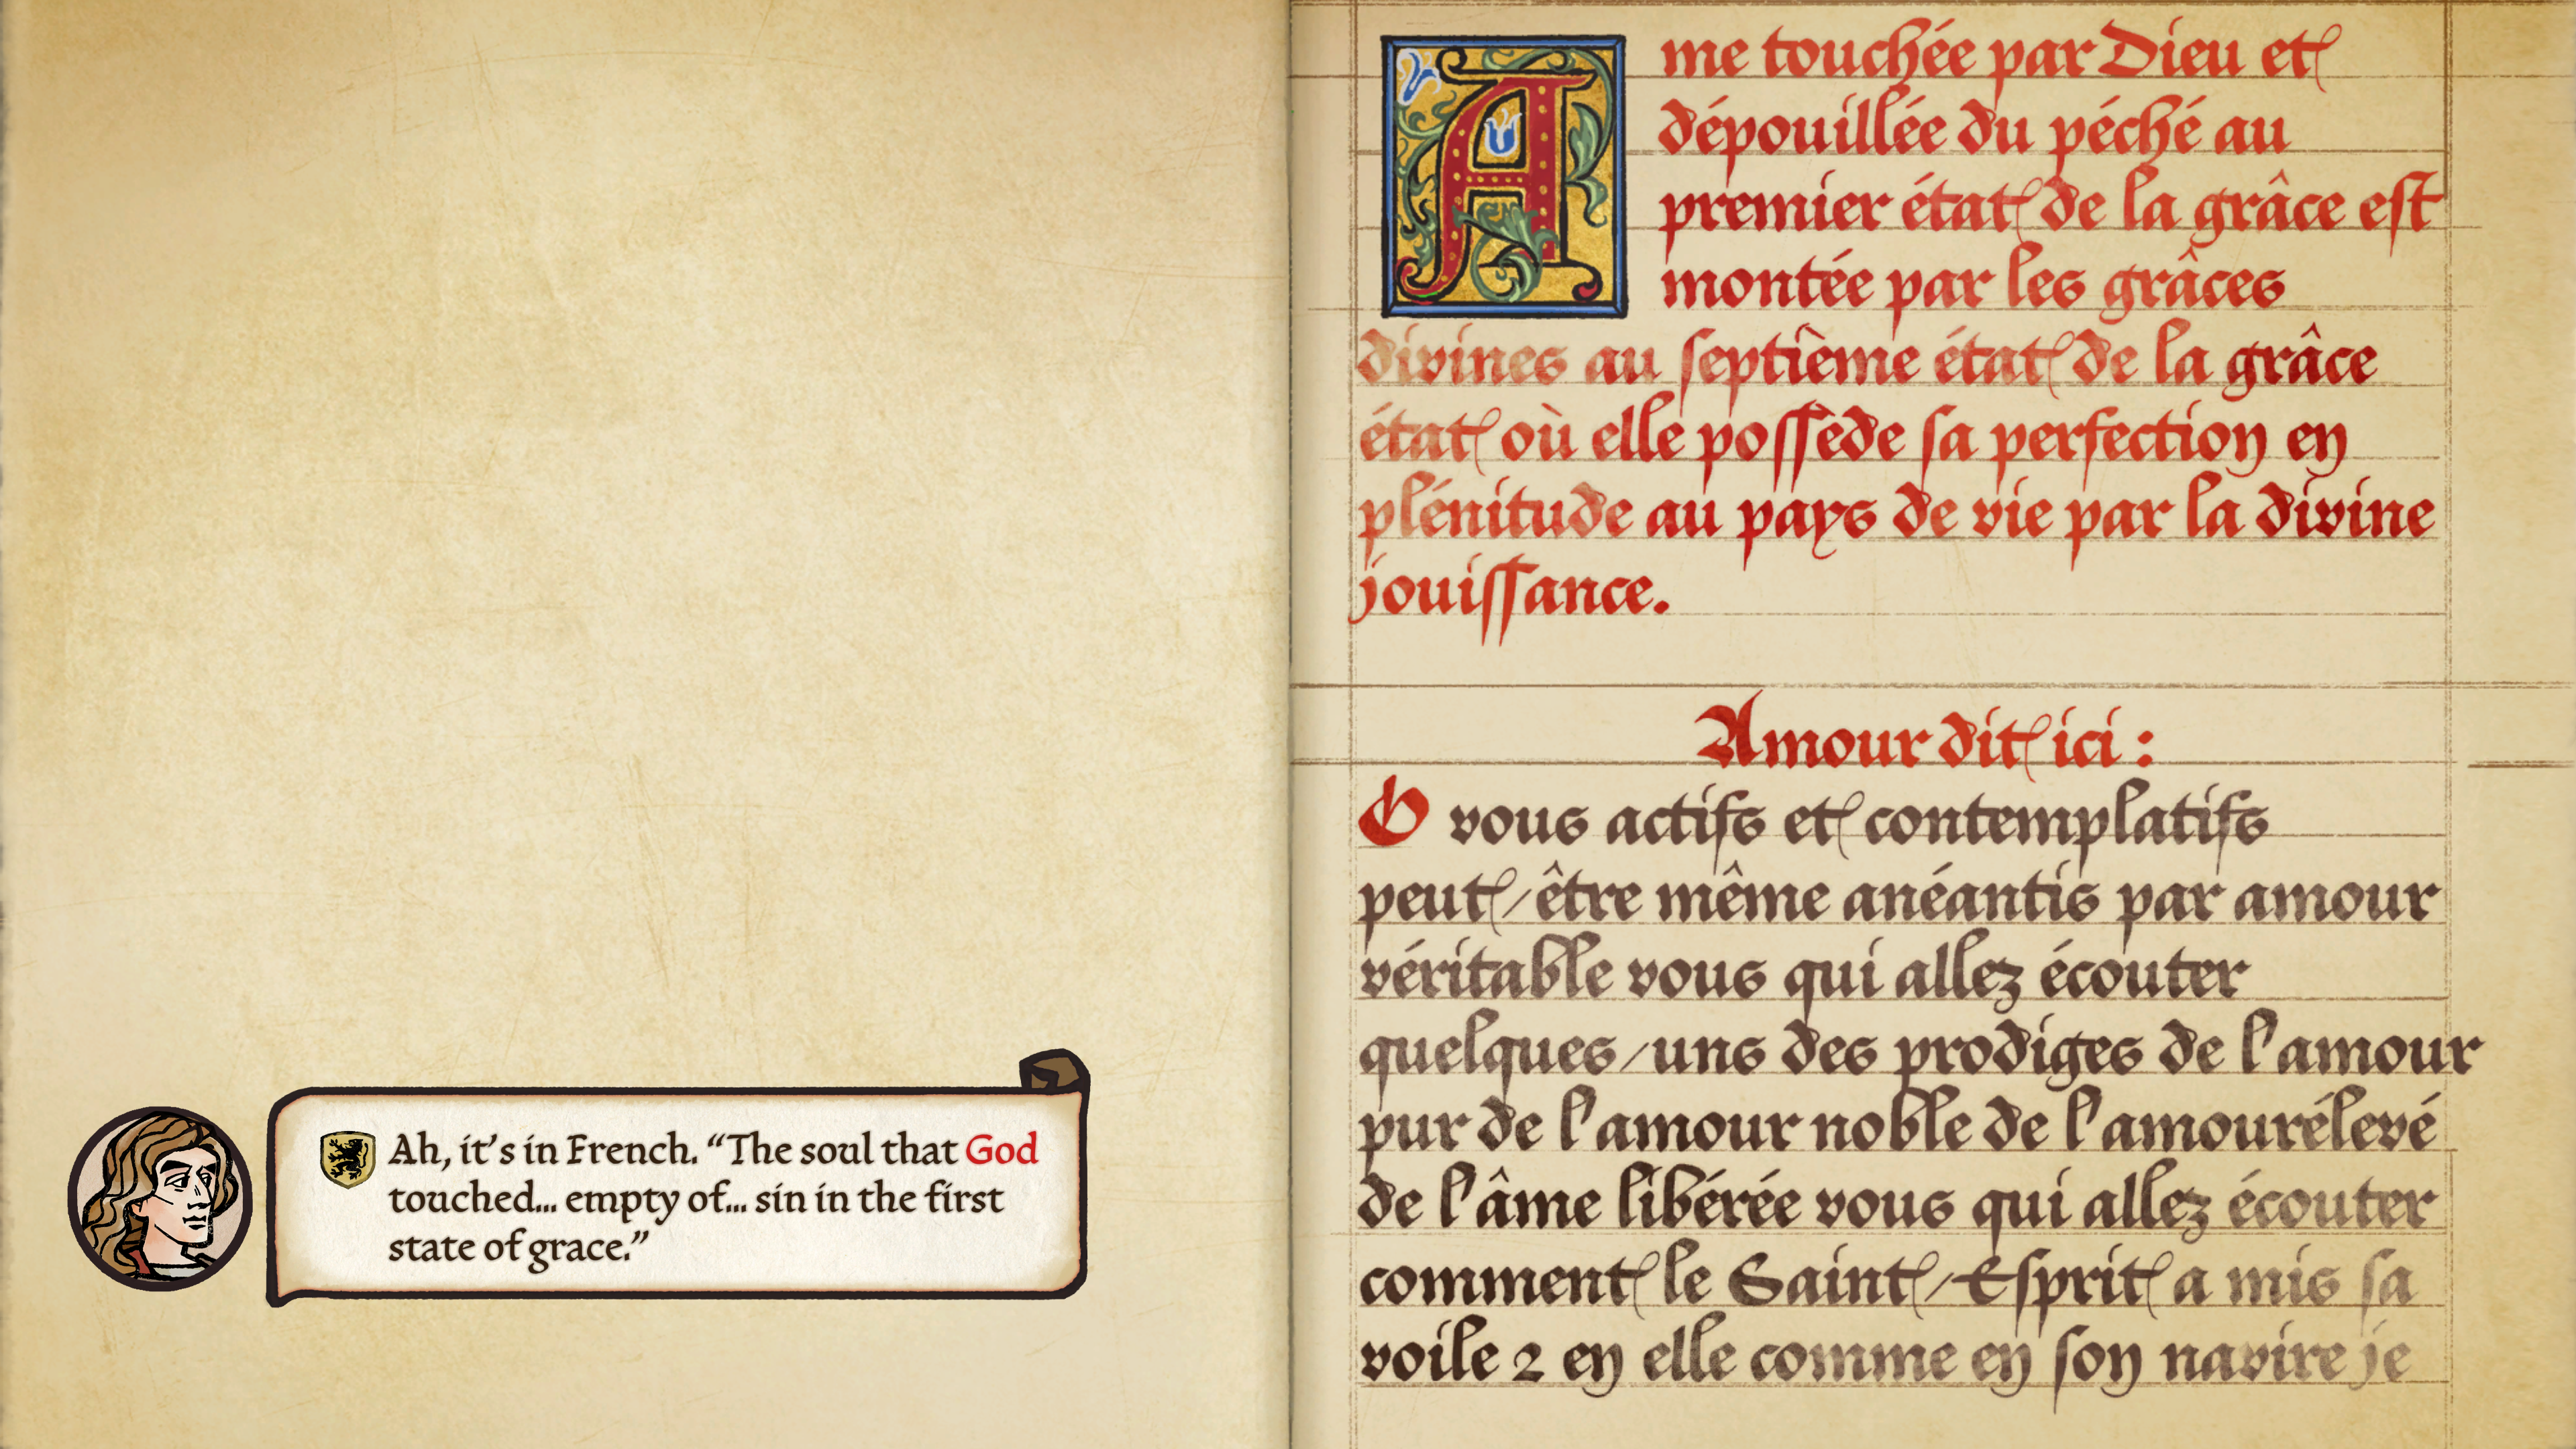 Ah, it's in French. “The soul that God
touched... empty of... sin in the first
state of grace.”
Ame touchée par Dieu et
dépouillée du péché au
premier état de la grâce est
montée par les grâces
divines au septième état de la grâce
état où elle possède sa perfection en
plénitude au pays de vie par la divine
jouissance.
Amour dit ici :
O vous actifs et contemplatifs
peut-être même anéantis par amour
véritable vous qui allez écouter
quelques-uns des prodiges de l'amour
pur de l'amour noble de l'amourélevé
de l'âme libérée vous qui allez écouter
comment le Saint-Esprit a mis sa
voile 2 en elle comme en son navire je